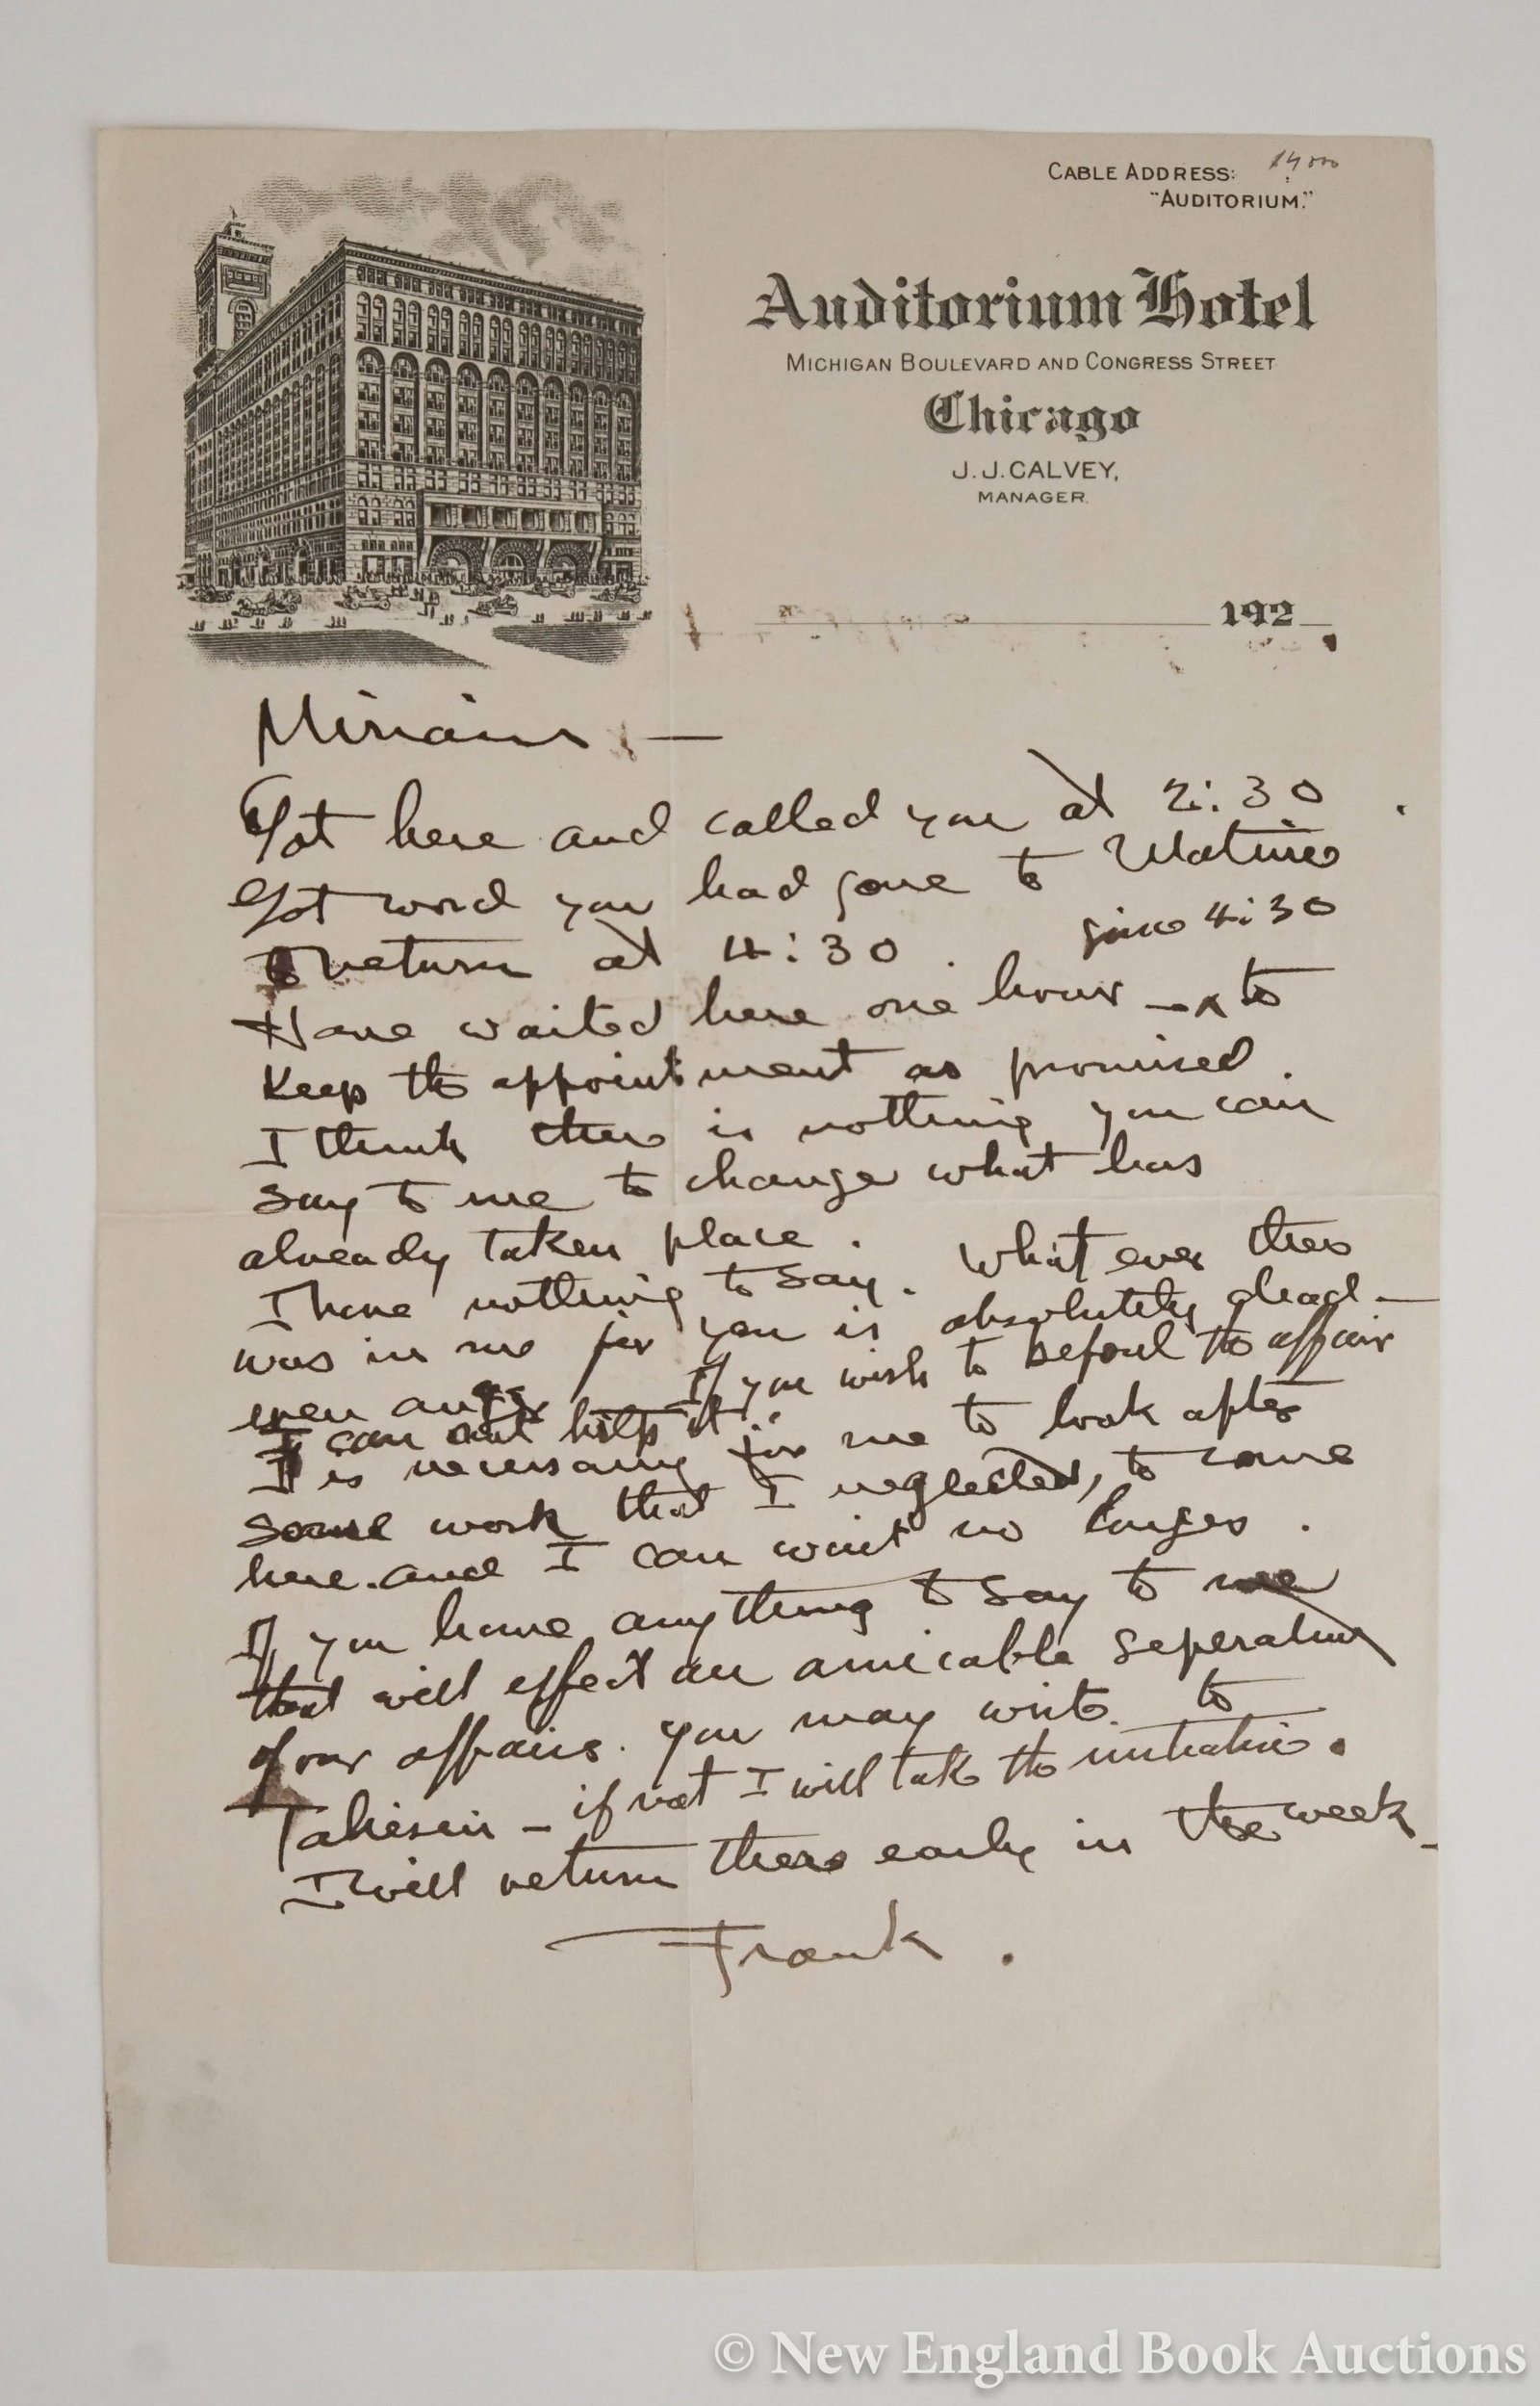 CABLE ADDRESS:
"AUDITORIUM."
Auditorium Hotel
MICHIGAN BOULEVARD AND CONGRESS STREET
Chicago
J. J. CALVEY,
MANAGER.
192
Miriam —
Got here and called you at 2:30
Got word you had gone to Matinee
return at 4:30.
since 4:30
Have waited here one hour — ^ to
Keep the appointment as promised.
I think there is nothing you can
say to me to change what has
already taken place.
I have nothing to say. What ever there
was in me for you is absolutely dead —
even anger If you wish to befoul the affair
I can not help it.
It is necessary for me to look after
some work that I neglected, to come
here. and I can wait no longer.
If you have anything to say to me
that will effect an amicable seperation
of our affairs. you may write. to
Taliesin — if not I will take the initiative.
I will return there early in the week —
Frank.
© New England Book Auctions